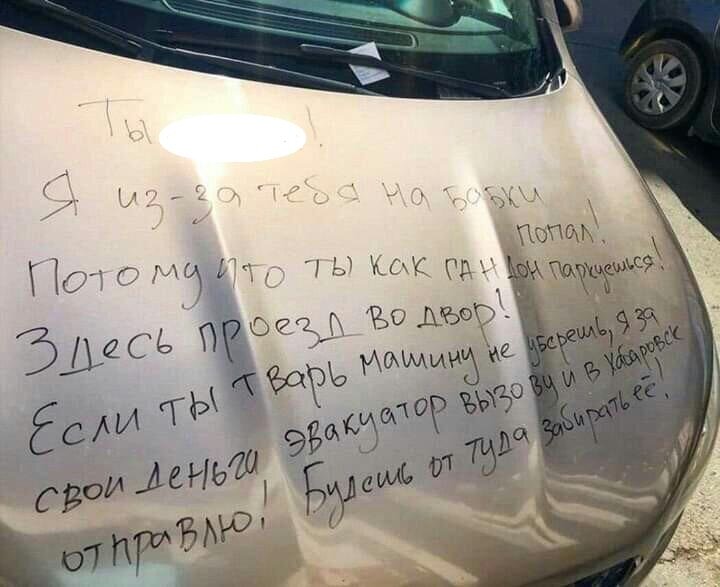 Ты !
Я из-за тебя на бабки
попал!
Потому что ты как гандон паркуешься!
Здесь проезд во двор!
Если ты тварь машину не уберешь, я за
свои деньги эвакуатор вызову и в Хабаровск
отправлю! Будешь от туда забирать её!